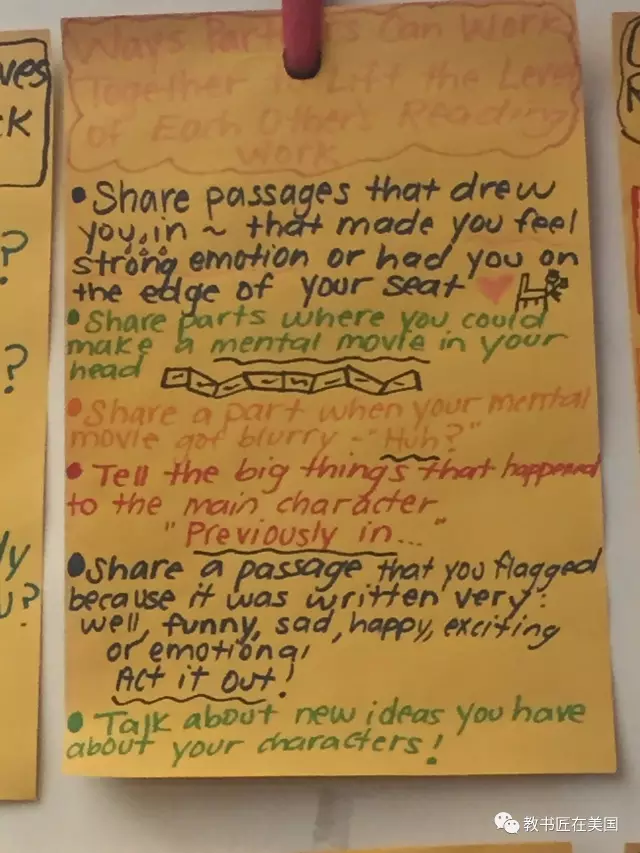 Ways Partners Can Work
Together to Lift the Level
of Each Other's Reading
Work
• Share passages that drew
you in ~ that made you feel
strong emotion or had you on
the edge of your seat
• Share parts where you could
make a mental movie in your
head
• Share a part when your mental
movie got blurry - "Huh?"
• Tell the big things that happened
to the main character
"Previously in..."
• Share a passage that you flagged
because it was written very:
well, funny, sad, happy, exciting
or emotional
Act it Out!
• Talk about new ideas you have
about your characters!
ves
ck
?
?
ly
?
教书匠在美国